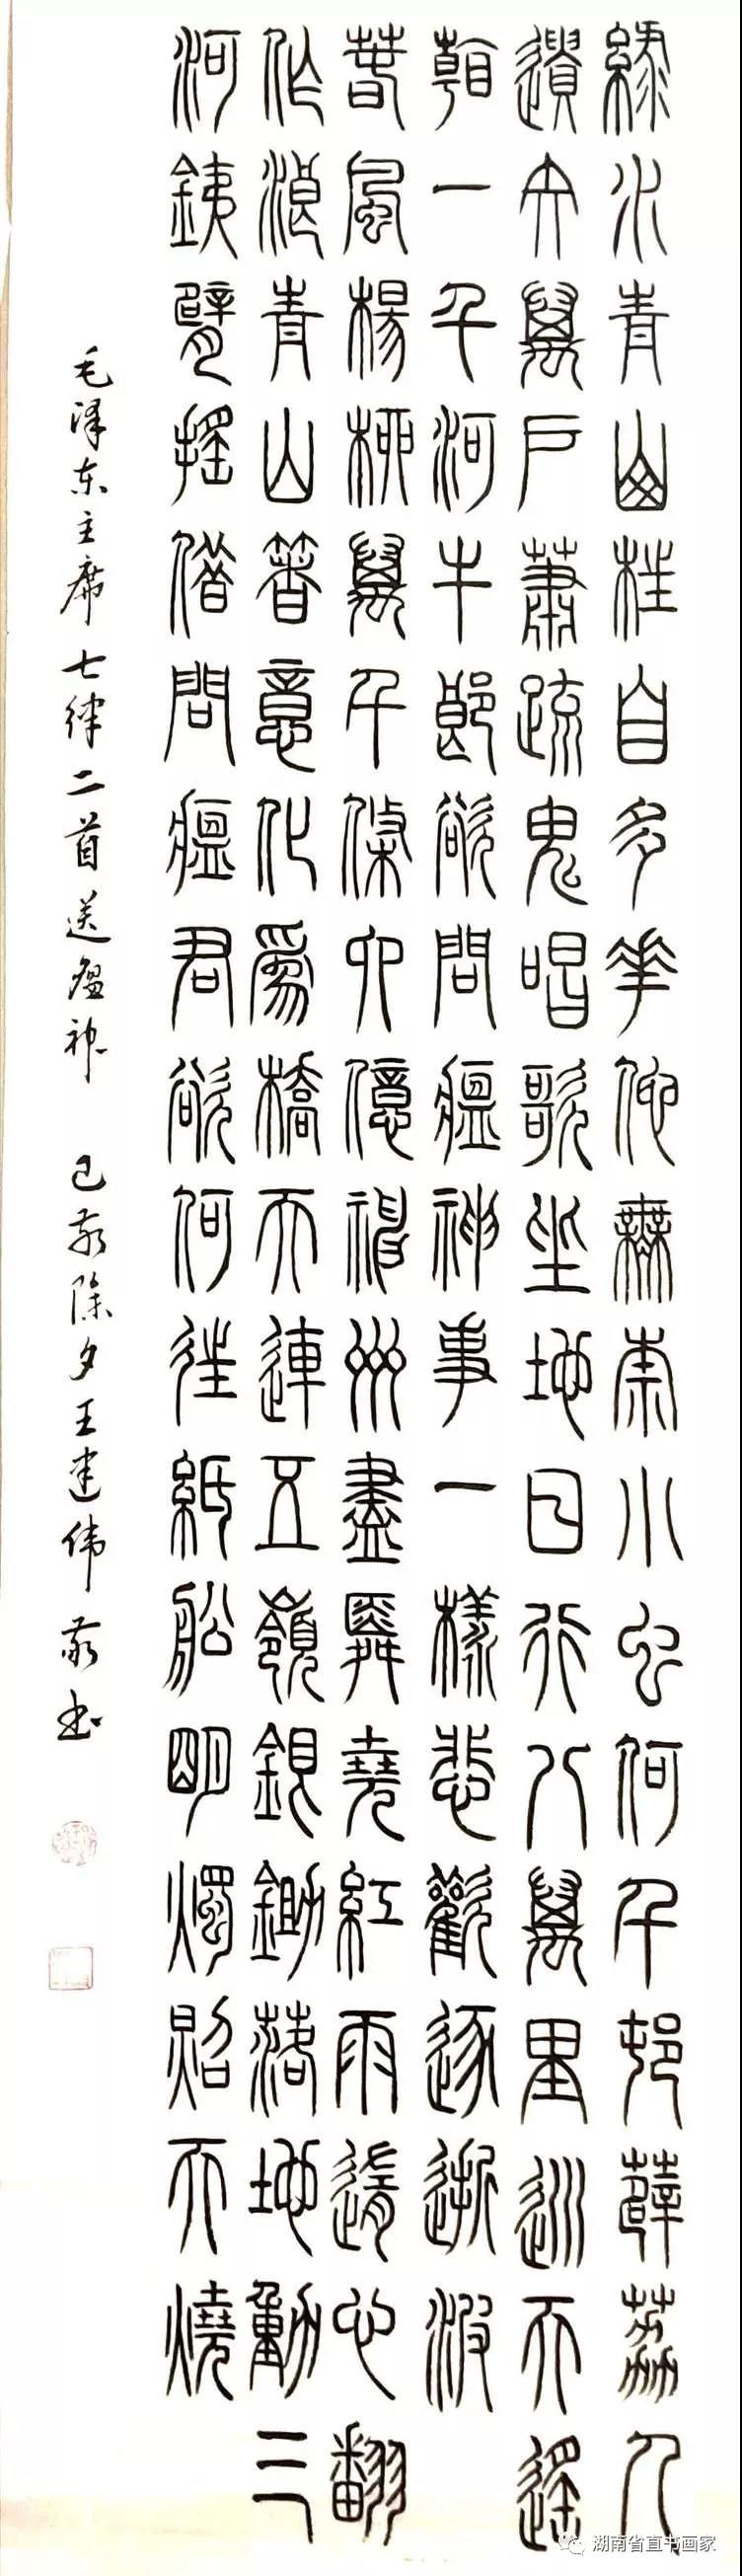 綠水青山枉自多華佗無奈小虫何千邨薜荔人
遺矢萬戶蕭疏鬼唱歌坐地日行八萬里巡天遙
看一千河牛郎欲問瘟神事一樣悲歡逐逝波
春風楊柳萬千條六億神州盡舜堯紅雨隨心翻
作浪青山著意化為橋天連五嶺銀鋤落地動三
河鐵臂搖借問瘟君欲何往紙船明燭照天燒
毛泽东主席七律二首送瘟神 己亥除夕王建伟敬书
湖南省直书画家